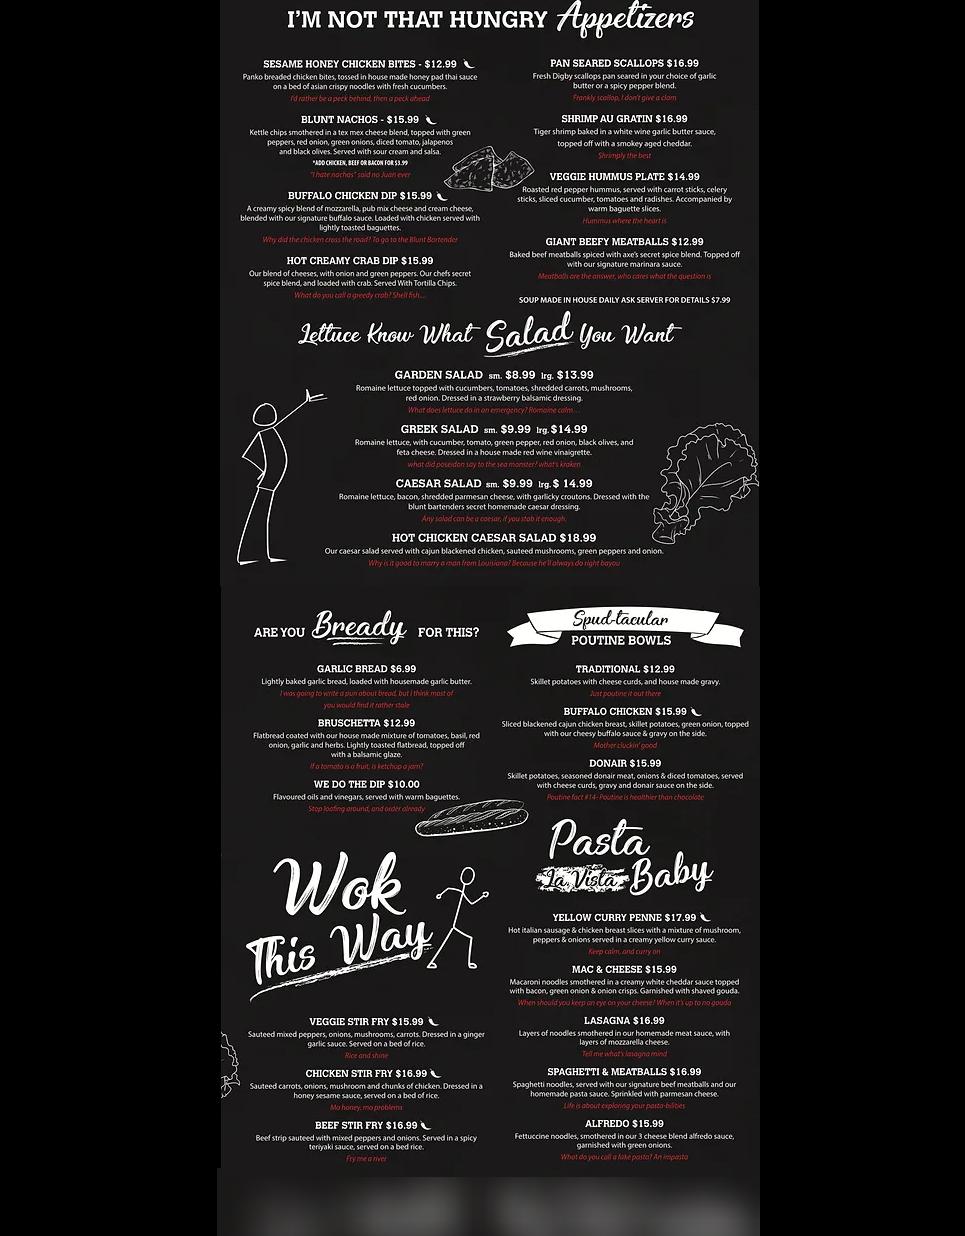 I'M NOT THAT HUNGRY Appetizers
SESAME HONEY CHICKEN BITES - $12.99
Panko breaded chicken bites, tossed in house made honey pad thai sauce
on a bed of asian crispy noodles with fresh cucumbers.
I'd rather be a peck behind, then a peck ahead
BLUNT NACHOS - $15.99
Kettle chips smothered in a tex mex cheese blend, topped with green
peppers, red onion, green onions, diced tomato, jalapenos
and black olives. Served with sour cream and salsa.
*ADD CHICKEN, BEEF OR BACON FOR $3.99
"I hate nachos" said no Juan ever
BUFFALO CHICKEN DIP $15.99
A creamy spicy blend of mozzarella, pub mix cheese and cream cheese,
blended with our signature buffalo sauce. Loaded with chicken served with
lightly toasted baguettes.
Why did the chicken cross the road? To go to the Blunt Bartender
HOT CREAMY CRAB DIP $15.99
Our blend of cheeses, with onion and green peppers. Our chefs secret
spice blend, and loaded with crab. Served With Tortilla Chips.
What do you call a greedy crab? Shell fish...
PAN SEARED SCALLOPS $16.99
Fresh Digby scallops pan seared in your choice of garlic
butter or a spicy pepper blend.
Frankly scallop, I don't give a clam
SHRIMP AU GRATIN $16.99
Tiger shrimp baked in a white wine garlic butter sauce,
topped off with a smokey aged cheddar.
Shrimply the best
VEGGIE HUMMUS PLATE $14.99
Roasted red pepper hummus, served with carrot sticks, celery
sticks, sliced cucumber, tomatoes and radishes. Accompanied by
warm baguette slices.
Hummus where the heart is
GIANT BEEFY MEATBALLS $12.99
Baked beef meatballs spiced with axe's secret spice blend. Topped off
with our signature marinara sauce.
Meatballs are the answer, who cares what the question is
SOUP MADE IN HOUSE DAILY ASK SERVER FOR DETAILS $7.99
Lettuce Know What Salad You Want
GARDEN SALAD sm. $8.99 lrg. $13.99
Romaine lettuce topped with cucumbers, tomatoes, shredded carrots, mushrooms,
red onion. Dressed in a strawberry balsamic dressing.
What does lettuce do in an emergency? Romaine calm...
GREEK SALAD sm. $9.99 lrg. $14.99
Romaine lettuce, with cucumber, tomato, green pepper, red onion, black olives, and
feta cheese. Dressed in a house made red wine vinaigrette.
what did poseidon say to the sea monster? what's kraken
CAESAR SALAD sm. $9.99 lrg. $ 14.99
Romaine lettuce, bacon, shredded parmesan cheese, with garlicky croutons. Dressed with the
blunt bartenders secret homemade caesar dressing.
Any salad can be a caesar, if you stab it enough.
HOT CHICKEN CAESAR SALAD $18.99
Our caesar salad served with cajun blackened chicken, sauteed mushrooms, green peppers and onion.
Why is it good to marry a man from Louisiana? Because he'll always do right bayou
ARE YOU Bready FOR THIS?
GARLIC BREAD $6.99
Lightly baked garlic bread, loaded with housemade garlic butter.
I was going to write a pun about bread, but I think most of
you would find it rather stale
BRUSCHETTA $12.99
Flatbread coated with our house made mixture of tomatoes, basil, red
onion, garlic and herbs. Lightly toasted flatbread, topped off
with a balsamic glaze.
If a tomato is a fruit, is ketchup a jam?
WE DO THE DIP $10.00
Flavoured oils and vinegars, served with warm baguettes.
Stop loafing around, and order already
Wok
This Way
VEGGIE STIR FRY $15.99
Sauteed mixed peppers, onions, mushrooms, carrots. Dressed in a ginger
garlic sauce. Served on a bed of rice.
Rice and shine
CHICKEN STIR FRY $16.99
Sauteed carrots, onions, mushroom and chunks of chicken. Dressed in a
honey sesame sauce, served on a bed of rice.
Mo honey, mo problems
BEEF STIR FRY $16.99
Beef strip sauteed with mixed peppers and onions. Served in a spicy
teriyaki sauce, served on a bed rice.
Fry me a river
Spud-tacular
POUTINE BOWLS
TRADITIONAL $12.99
Skillet potatoes with cheese curds, and house made gravy.
Just poutine it out there
BUFFALO CHICKEN $15.99
Sliced blackened cajun chicken breast, skillet potatoes, green onion, topped
with our cheesy buffalo sauce & gravy on the side.
Mother cluckin' good
DONAIR $15.99
Skillet potatoes, seasoned donair meat, onions & diced tomatoes, served
with cheese curds, gravy and donair sauce on the side.
Poutine fact #14- Poutine is healthier than chocolate
Pasta
La Vista Baby
YELLOW CURRY PENNE $17.99
Hot italian sausage & chicken breast slices with a mixture of mushroom,
peppers & onions served in a creamy yellow curry sauce.
Keep calm, and curry on
MAC & CHEESE $15.99
Macaroni noodles smothered in a creamy white cheddar sauce topped
with bacon, green onion & onion crisps. Garnished with shaved gouda.
When should you keep an eye on your cheese? When it's up to no gouda
LASAGNA $16.99
Layers of noodles smothered in our homemade meat sauce, with
layers of mozzarella cheese.
Tell me what's lasagna mind
SPAGHETTI & MEATBALLS $16.99
Spaghetti noodles, served with our signature beef meatballs and our
homemade pasta sauce. Sprinkled with parmesan cheese.
Life is about exploring your pasta-bilities
ALFREDO $15.99
Fettuccine noodles, smothered in our 3 cheese blend alfredo sauce,
garnished with green onions.
What do you call a fake pasta? An impasta